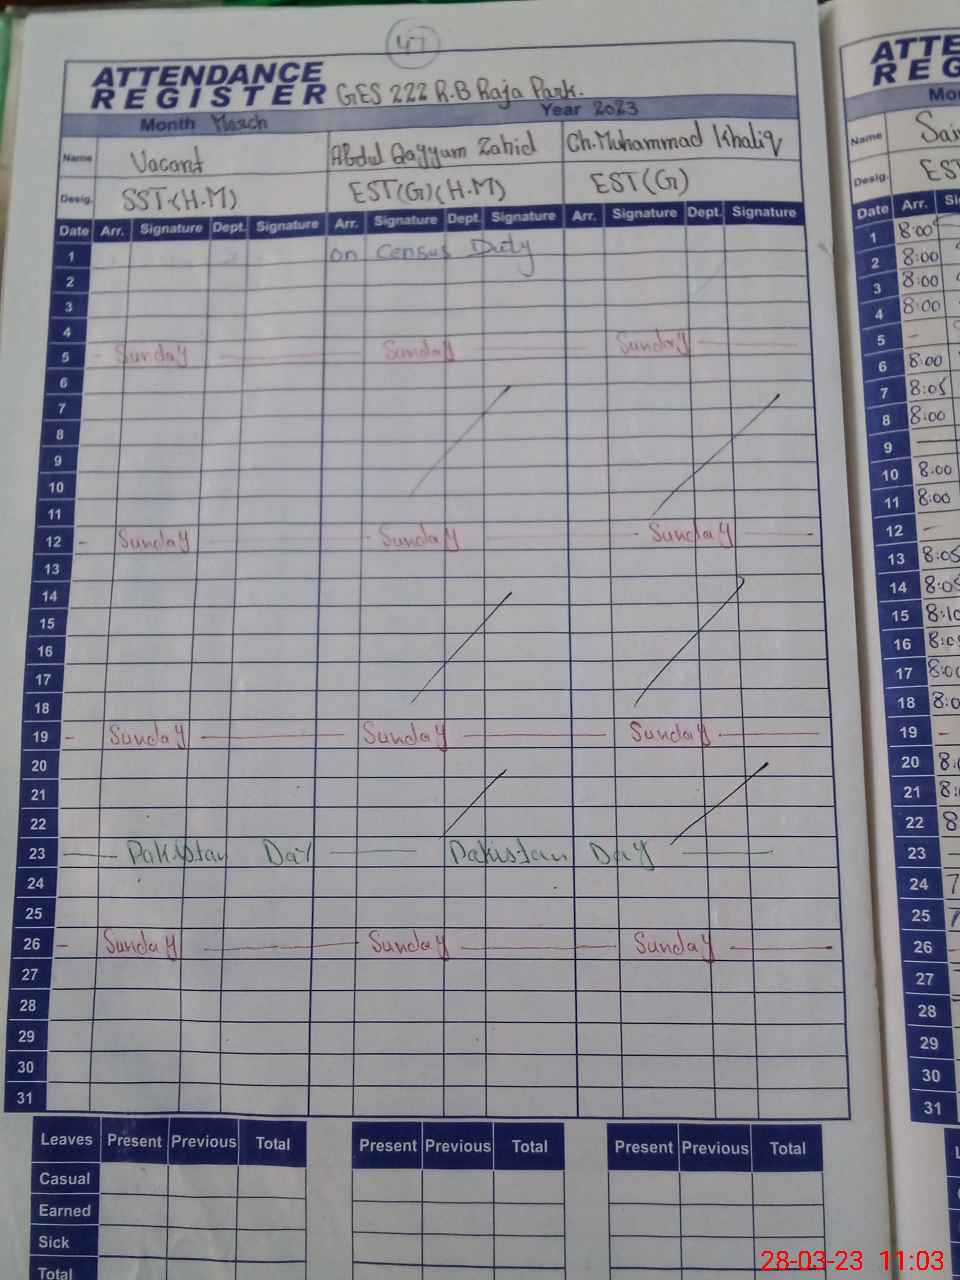 47
ATTENDANCE
REGISTER GES 222 R.B Raja Park.
Month March Year 2023
Name Vacant Abdul Qayyum Zahid Ch. Muhammad Khaliq
Desig. SST (H.M) EST (G) (H.M) EST (G)
Date Arr. Signature Dept. Signature Arr. Signature Dept. Signature Arr. Signature Dept. Signature
1 on Census Duty
2
3
4
5 - Sunday Sunday Sunday
6
7
8
9
10
11
12 - Sunday - Sunday - Sunday
13
14
15
16
17
18
19 - Sunday Sunday Sunday
20
21
22
23 Pakistan Day Pakistan Day
24
25
26 - Sunday Sunday Sunday
27
28
29
30
31
Leaves Present Previous Total Present Previous Total Present Previous Total
Casual
Earned
Sick
Total
ATTE
REG
Mo
Name Sai
Desig. EST
Date Arr. Si
1 8:00
2 8:00
3 8:00
4 8:00
5 -
6 8:00
7 8:05
8 8:00
9
10 8:00
11 8:00
12 -
13 8:05
14 8:05
15 8:10
16
17 8:00
18
19 -
20
21
22
23
24
25
26 -
27
28
29
30
31
28-03-23 11:03